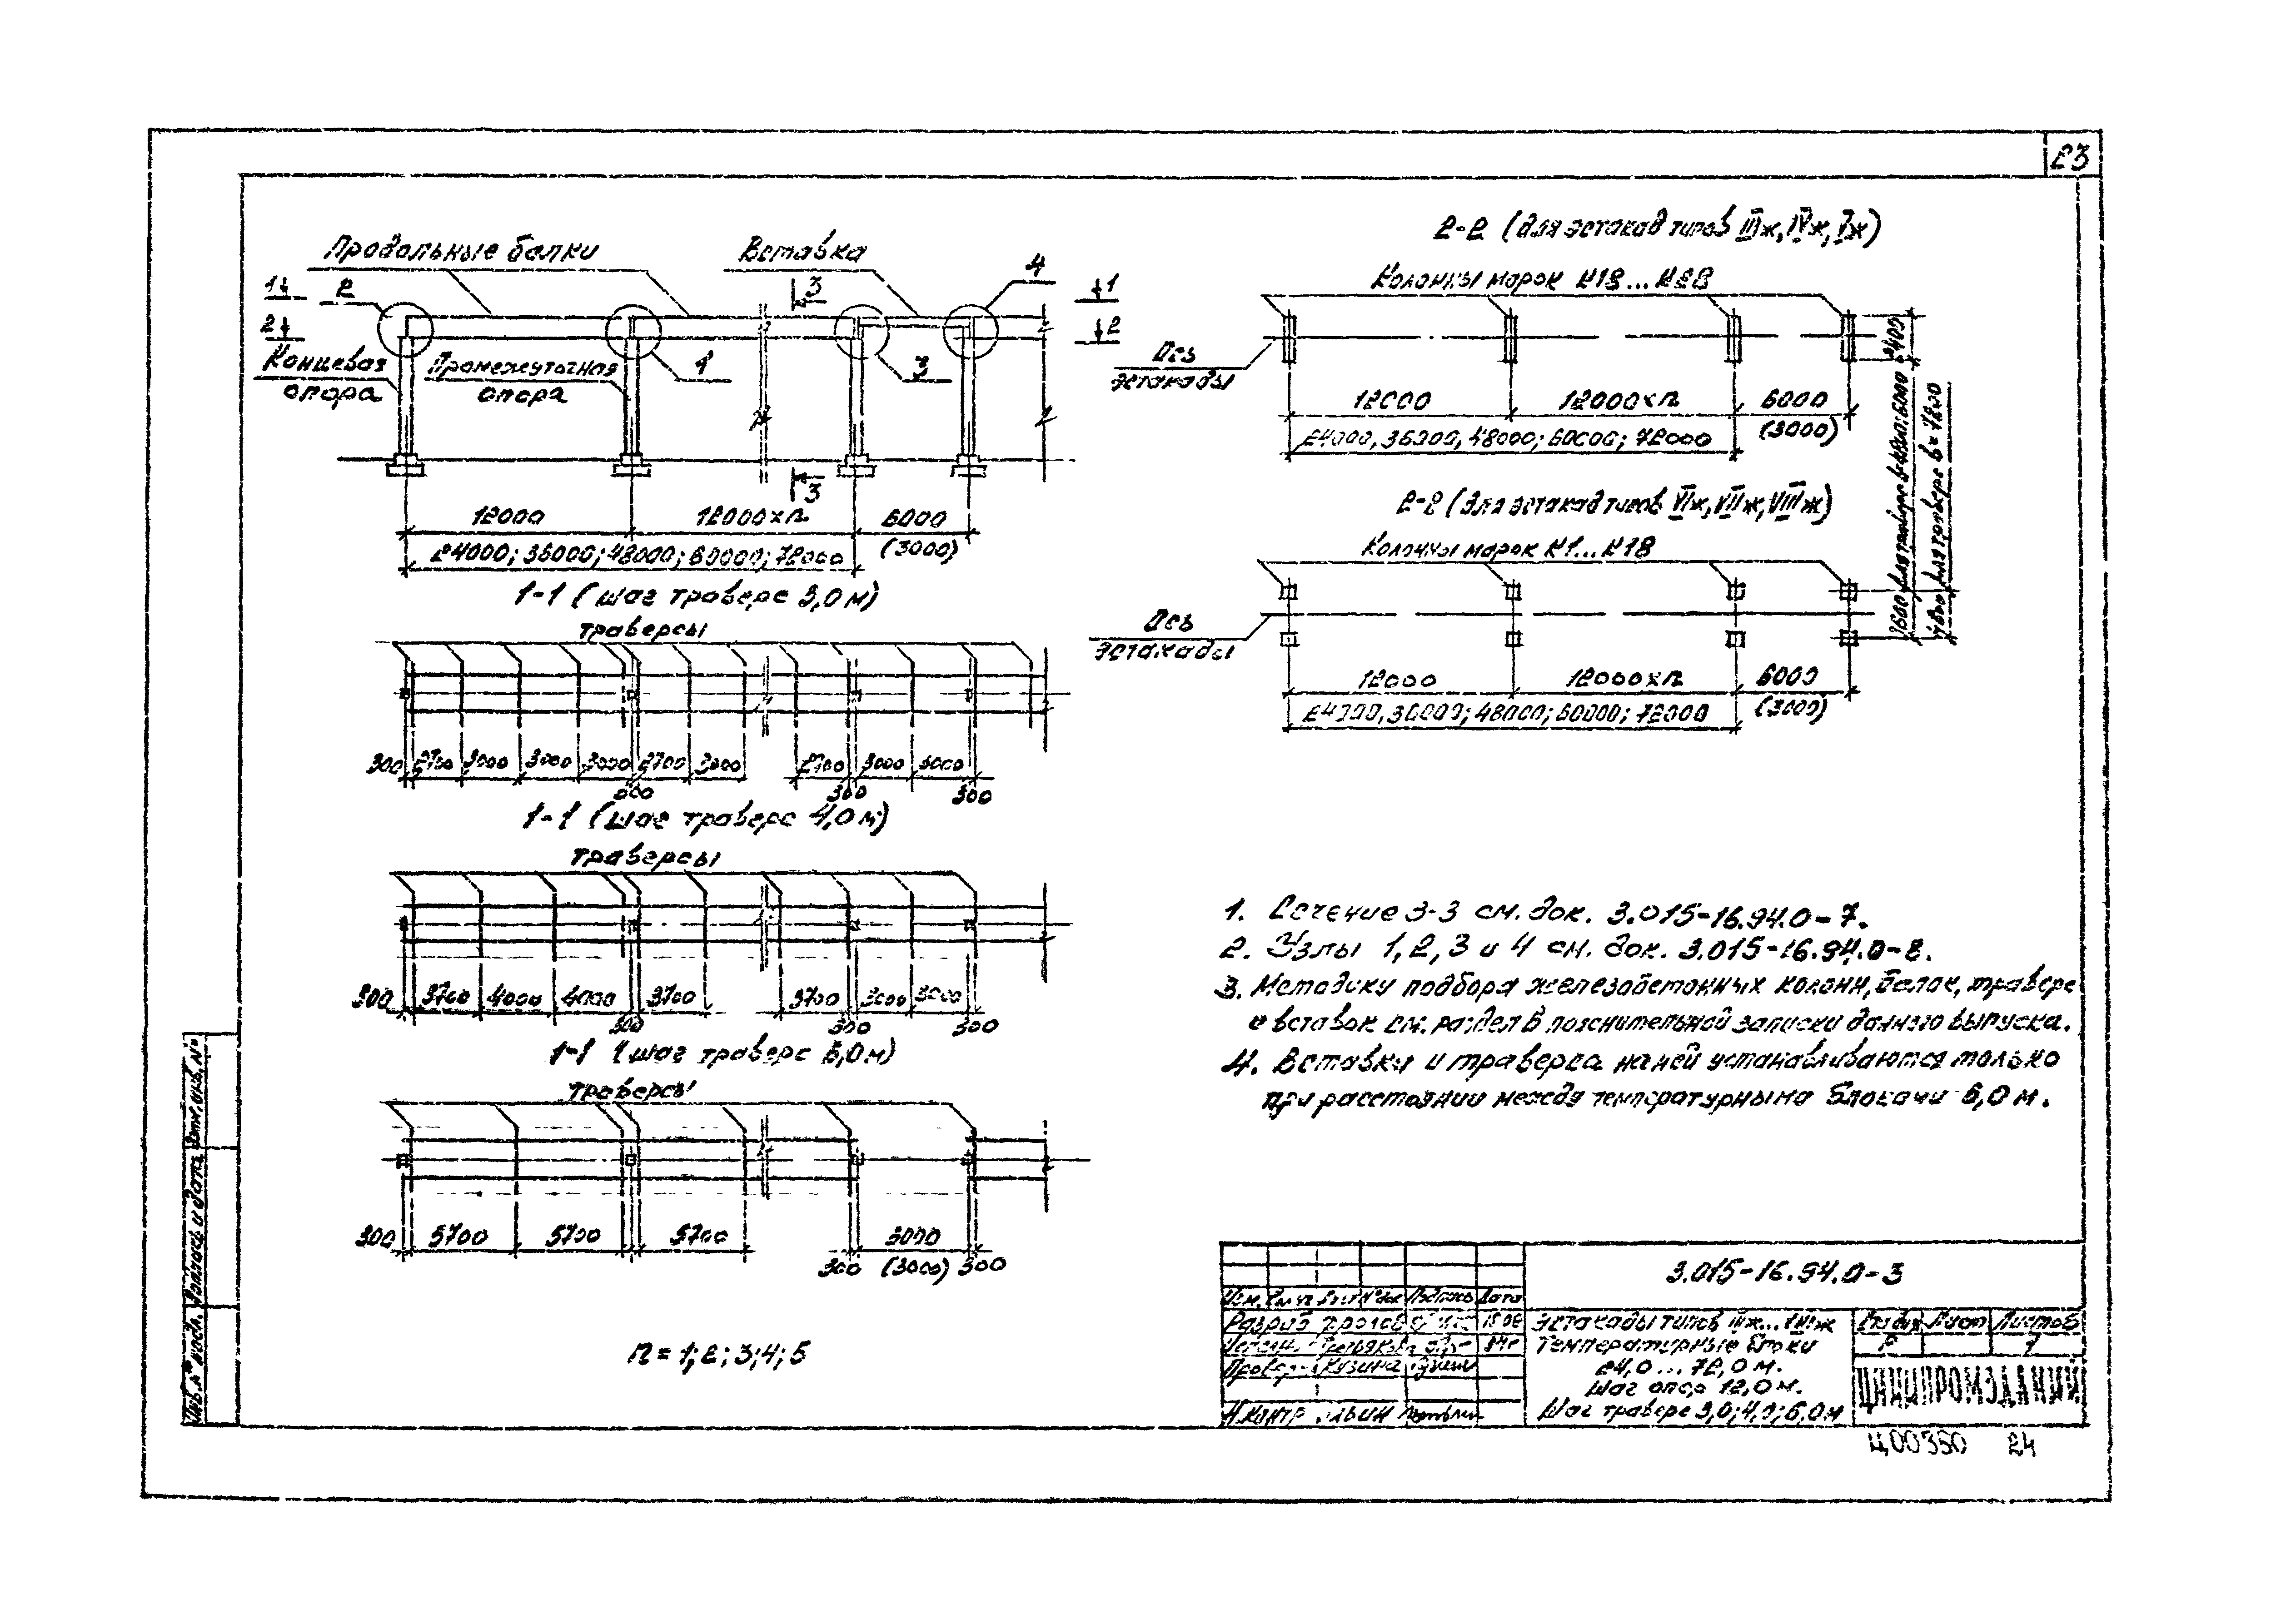 23
Продольные балки
Вставка
4
1
2
3
1
2
2
Концевая
опора
Промежуточная
опора
1
3
3
12000
12000×n
6000
24000; 36000; 48000; 60000; 72000
(3000)
1-1 (шаг траверс 3,0м)
траверсы
300 2700 3000 3000 3000 2700 3000 2700 3000 3000
300 300
1-1 (шаг траверс 4,0м)
траверсы
300 3700 4000 4000 3700 3700 3000 3000
300 300 300
1-1 (шаг траверс 6,0м)
траверсы
300 5700 5700 5700 3000
300 (3000) 300
n = 1; 2; 3; 4; 5
2-2 (для эстакад типов IIIж, IVж, Vж)
Колонны марок К18...К28
Ось
эстакады
2400
12000 12000×n 6000
24000, 36000, 48000; 60000; 72000 (3000)
2-2 (для эстакад типов VIж, VIIж, VIIIж)
Колонны марок К1...К18
Ось
эстакады
12000 12000×n 6000
24000, 36000; 48000; 60000; 72000 (3000)
1. Сечение 3-3 см. док. 3.015-16.94.0-7.
2. Узлы 1, 2, 3 и 4 см. док. 3.015-16.94.0-8.
3. Методику подбора железобетонных колонн, балок, траверс
и вставок см. раздел 6 пояснительной записки данного выпуска.
4. Вставки и траверса на ней устанавливаются только
при расстоянии между температурными блоками 6,0 м.
3.015-16.94.0-3
Изм. Кол.уч Лист №док Подпись Дата
Разраб
Провер. Кузина
Н.контр
Эстакады типов IIIж...VIIIж
Температурные блоки
24,0 ... 72,0 м.
Шаг опор 12,0 м.
Шаг траверс 3,0; 4,0; 6,0м
Стадия Лист Листов
Р 1
ЦНИИПРОМЗДАНИЙ
Инв.№ подл. Подпись и дата Взам.инв.№
Ц00350 24